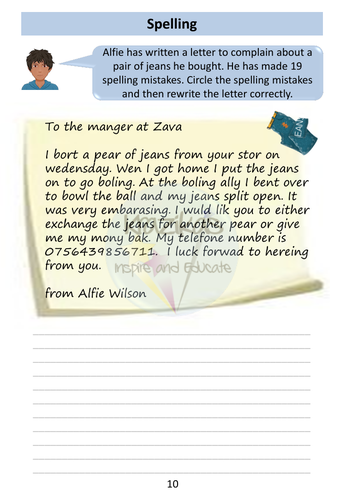 Spelling
Alfie has written a letter to complain about a
pair of jeans he bought. He has made 19
spelling mistakes. Circle the spelling mistakes
and then rewrite the letter correctly.
To the manger at Zava
I bort a pear of jeans from your stor on
wedensday. Wen I got home I put the jeans
on to go boling. At the boling ally I bent over
to bowl the ball and my jeans split open. It
was very embarasing. I wuld lik you to either
exchange the jeans for another pear or give
me my mony bak. My telefone number is
0756439856711. I luck forwad to hereing
from you.
Inspire and Educate
from Alfie Wilson
10